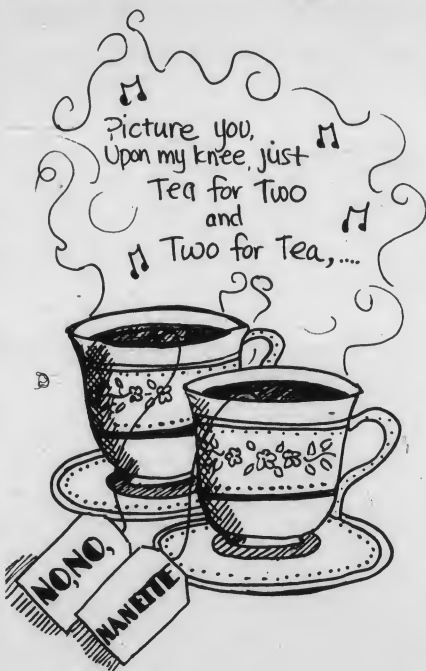 Picture you,
Upon my knee, just
Tea for Two
and
Two for Tea,....
NO, NO,
NANETTE